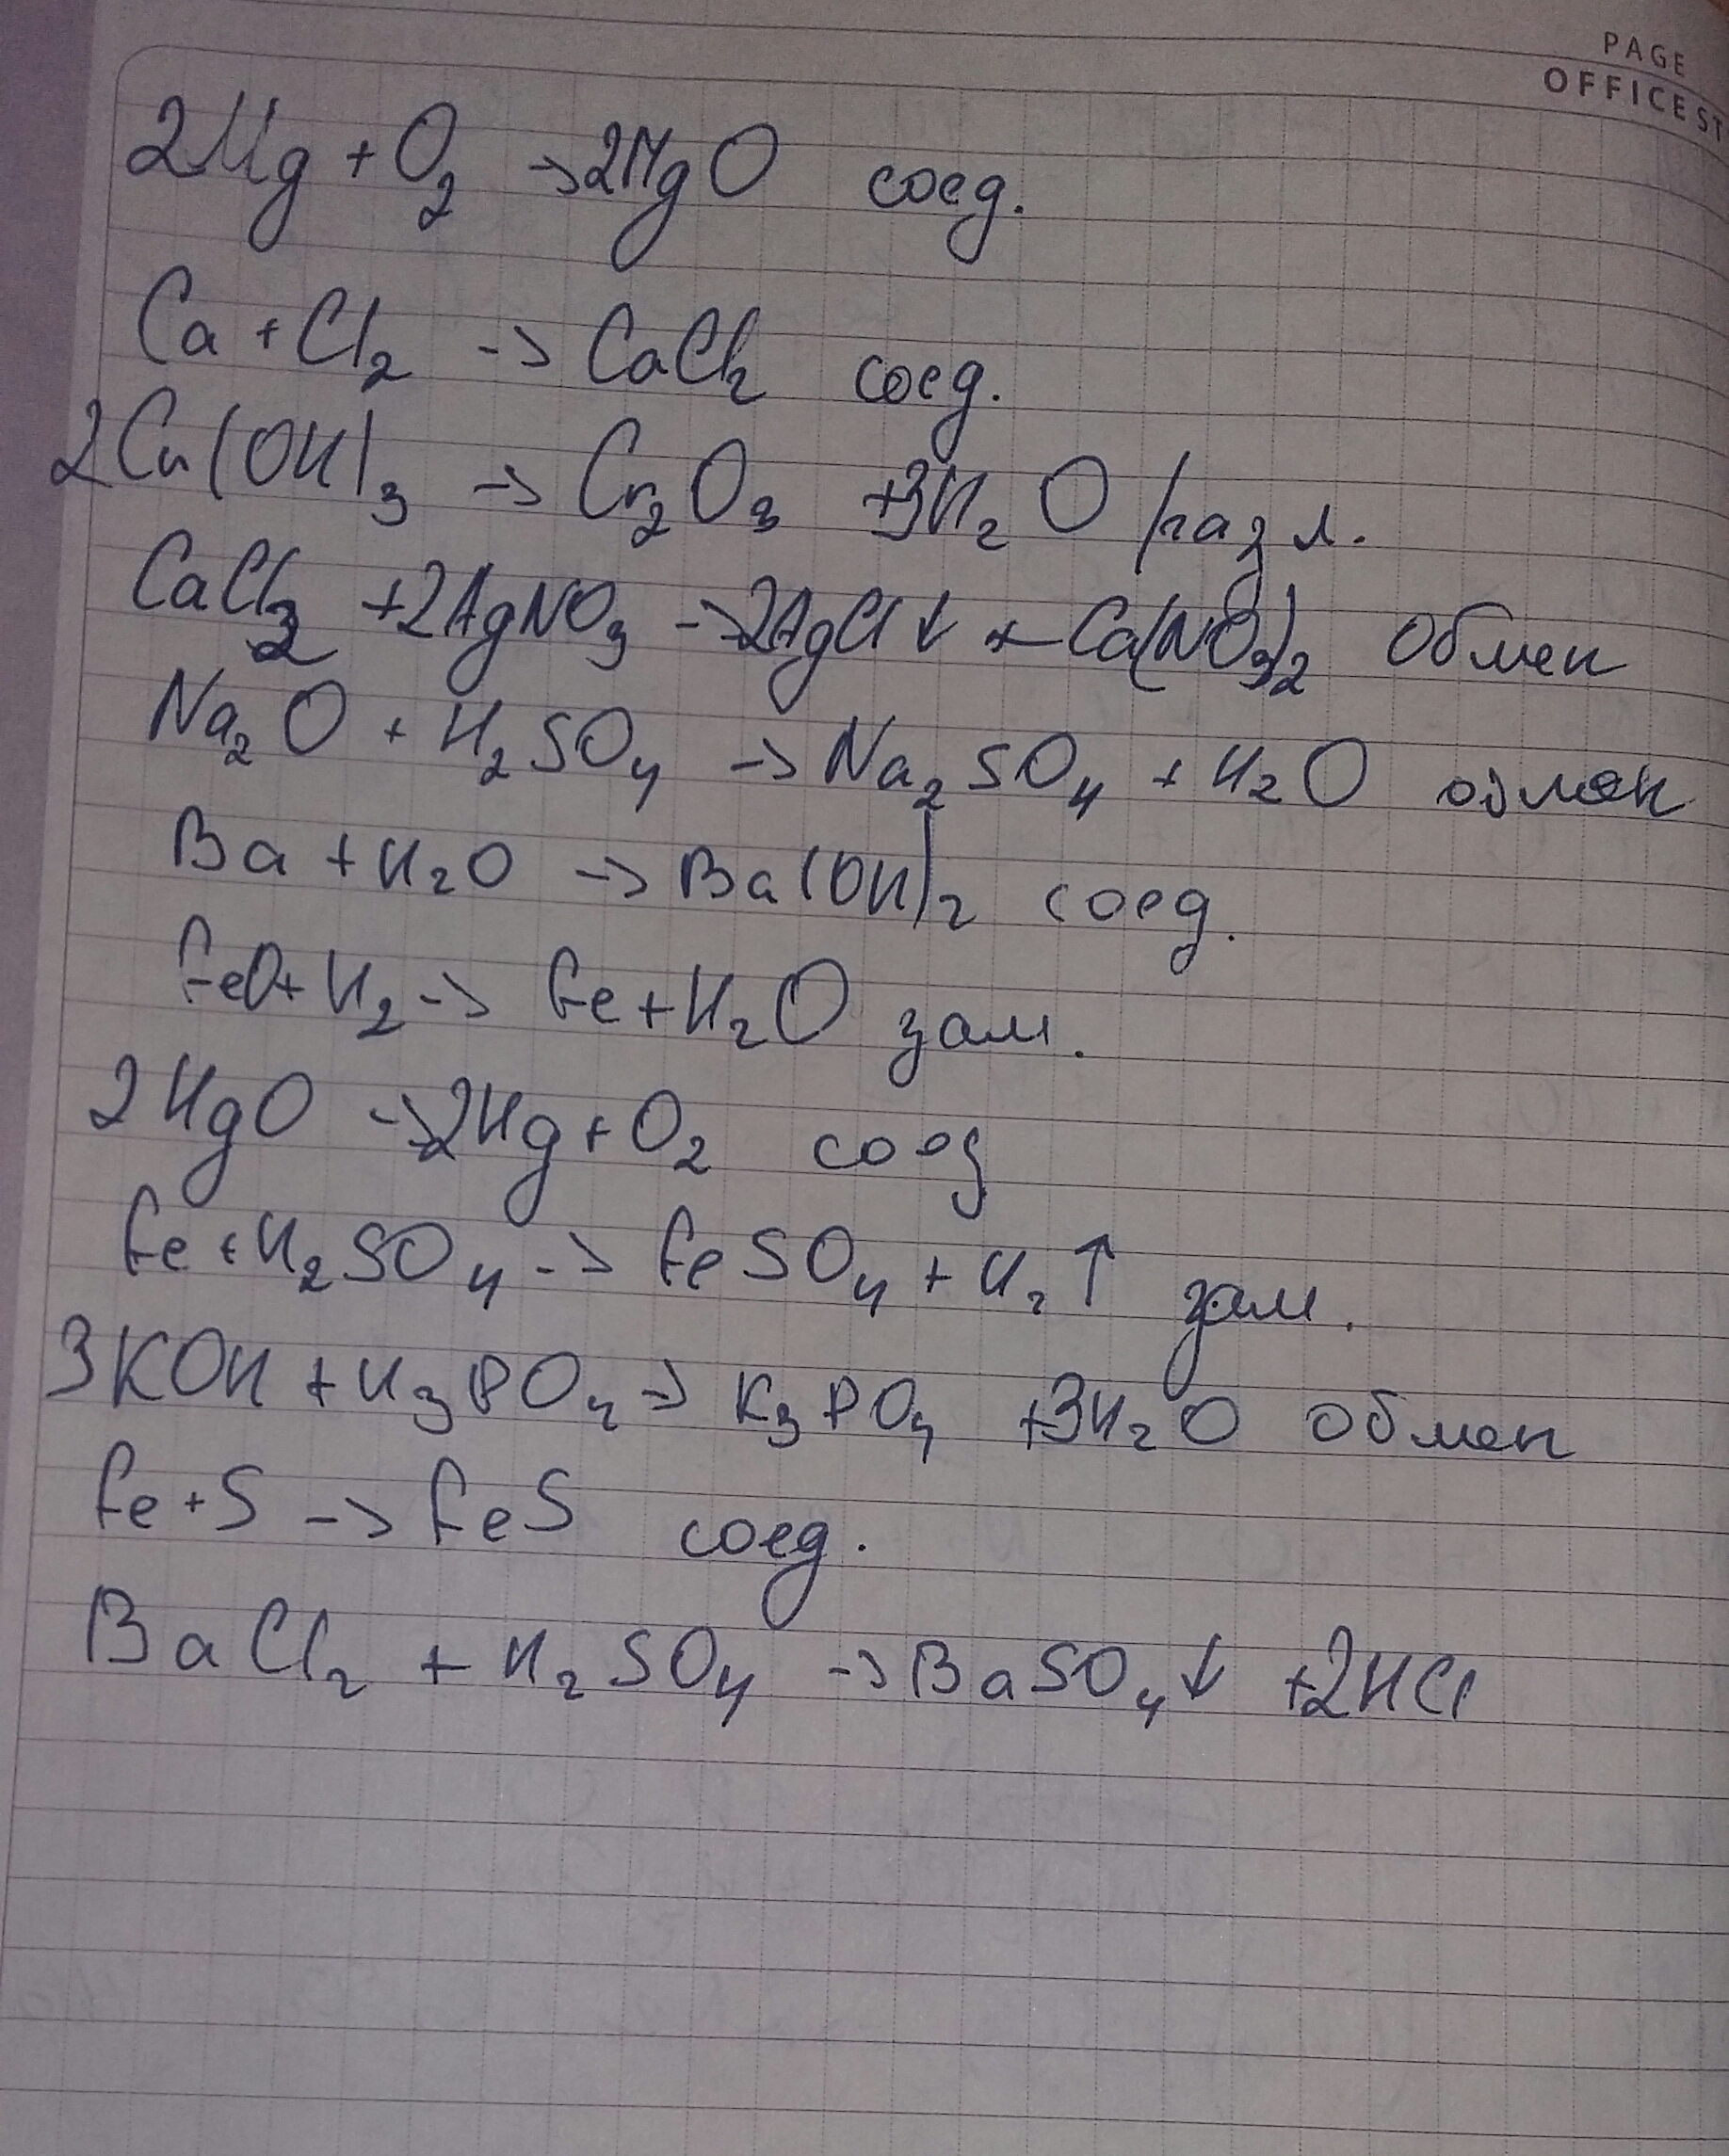 PAGE
OFFICE ST
2Mg + O₂ → 2MgO соед.
Ca + Cl₂ → CaCl₂ соед.
2Cr(OH)₃ → Cr₂O₃ + 3H₂O разл.
CaCl₂ + 2AgNO₃ → 2AgCl↓ + Ca(NO₃)₂ Обмен
Na₂O + H₂SO₄ → Na₂SO₄ + H₂O обмен
Ba + H₂O → Ba(OH)₂ соед.
FeO + H₂ → Fe + H₂O зам.
2HgO → 2Hg + O₂ соед
Fe + H₂SO₄ → FeSO₄ + H₂↑ зам.
3KOH + H₃PO₄ → K₃PO₄ + 3H₂O обмен
Fe + S → FeS соед.
BaCl₂ + H₂SO₄ → BaSO₄↓ + 2HCl